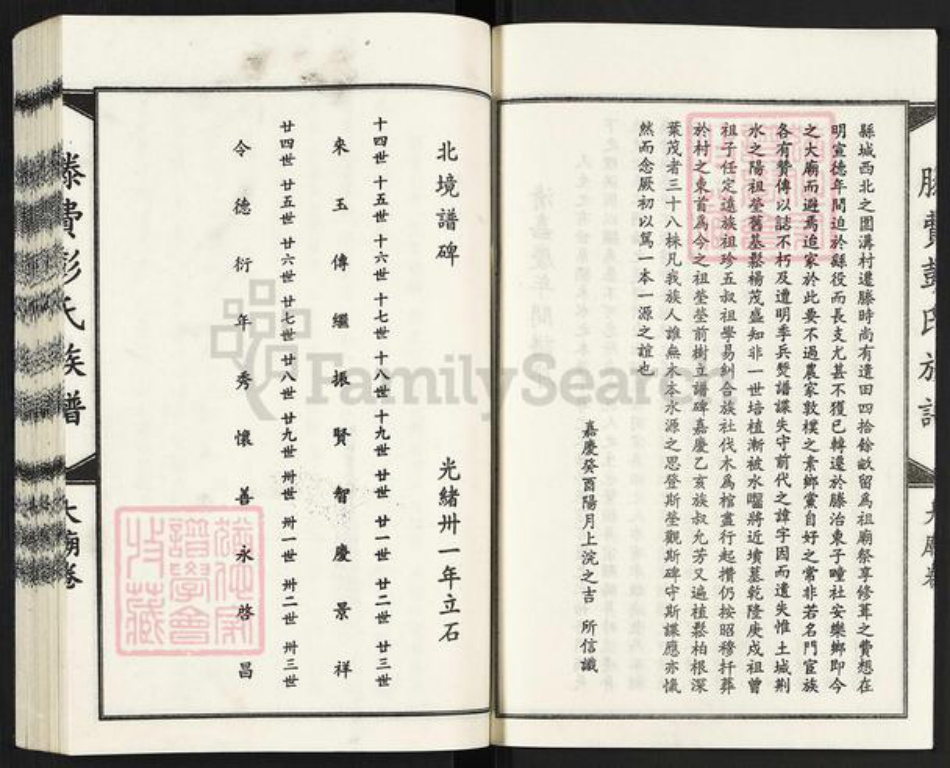 縣城西北之圍溝村遷滕時尚有遺田四拾餘畝留爲祖廟祭享修葺之費想在
明宣德年間迫於縣役而長支尤甚不獲已轉遷於滕治東子疃社安樂鄉即今
之大廟而避焉迨家於此要不過農家敦樸之素鄉黨自好之常非若名門宦族
各有贊傳以誌不朽及遭明季兵燹譜諜失守前代之諱字因而遺失惟土城荆
水之陽祖塋舊基鬆楊茂盛知非一世培植漸被水囓將近墳墓乾隆庚戍祖曾
祖子任定遠族祖珍五叔祖學易糾合族社伐木爲棺盡行起攢仍按昭穆扦葬
於村之東首爲今之祖塋塋前樹立譜碑嘉慶乙亥族叔允芳又遍植鬆柏根深
葉茂者三十八株凡我族人誰無木本水源之思登斯塋觀斯碑守斯諜應亦愾
然而念厥初以篤一本一源之誼也
嘉慶癸酉陽月上浣之吉 所信識
北境譜碑 光緒卅一年立石
十四世 十五世 十六世 十七世 十八世 十九世 廿世 廿一世 廿二世 廿三世
來 玉 傳 繼 振 賢 智 慶 景 祥
廿四世 廿五世 廿六世 廿七世 廿八世 廿九世 卅世 卅一世 卅二世 卅三世
令 德 衍 年 秀 懷 善 永 啓 昌
滕費彭氏族譜
大廟卷
FamilySearch